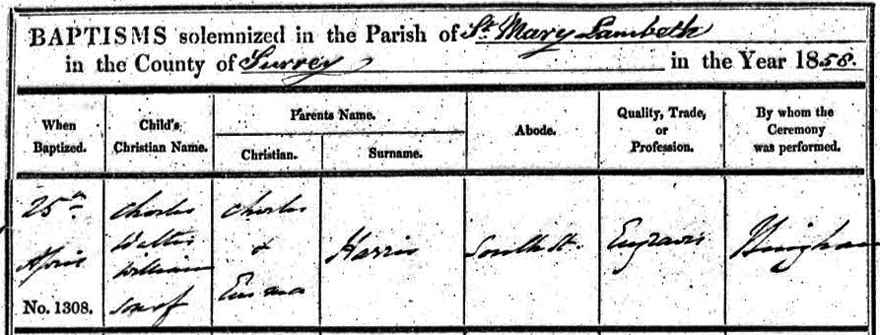 BAPTISMS solemnized in the Parish of St. Mary Lambeth
in the County of Surrey in the Year 1858.
When Baptized.
Child's Christian Name.
Parents Name.
Christian.
Surname.
Abode.
Quality, Trade, or Profession.
By whom the Ceremony was performed.
25th
April
No. 1308.
Charles
Walter
William
son of
Charles
&
Emma
Harris
South St.
Engraver